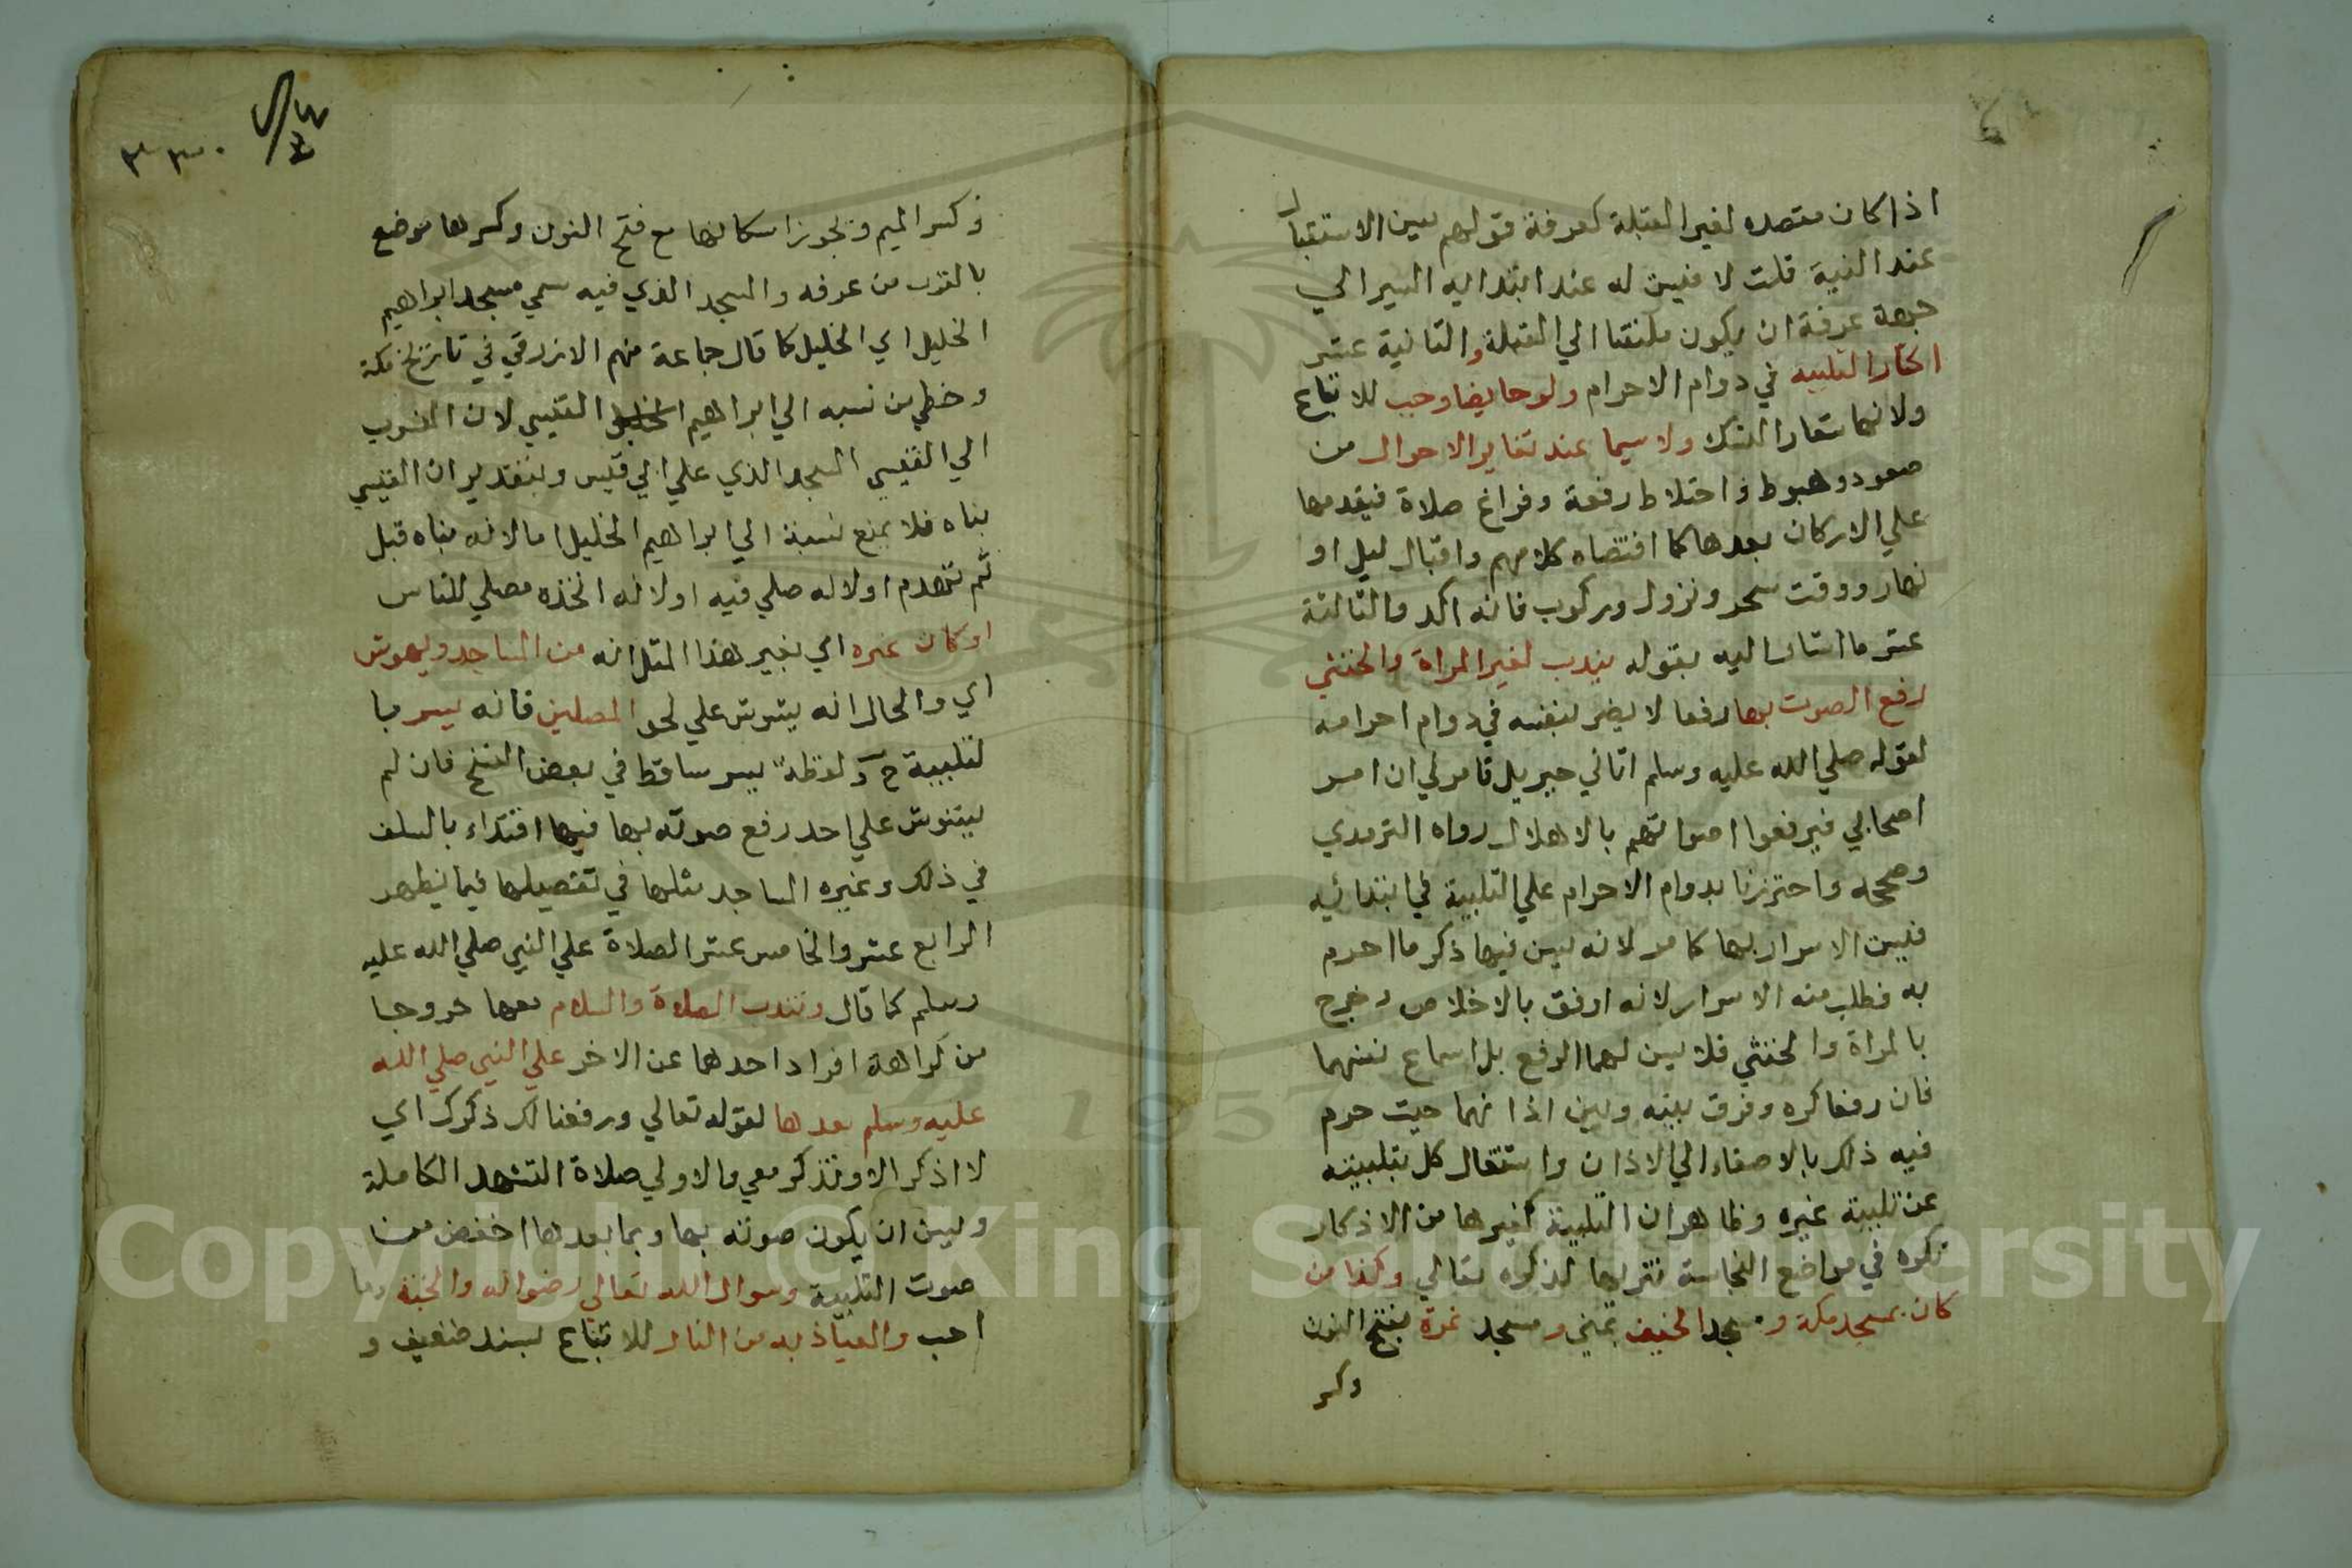 اذا كان مقصده لغير القبلة كعرفة قولهم يسن الاستقبال
عند النية قلت لا فيسن له عند ابتدايه السير الي
جهة عرفة ان يكون ملتفتا الي القبلة والثانية عشر
اكثار التلبيه في دوام الاحرام ولو حايضا وجب للاتباع
ولانها شعار النسك ولا سيما عند تغاير الاحوال من
صعود وهبوط واختلاط رفقة وفراغ صلاة فيقدمها
علي الاركان بعدها كما اقتضاه كلامهم واقبال ليل او
نهار ووقت سحر ونزول وركوب فانه اكد والثالثة
عشر ما اشار اليه بقوله يندب لغير المراة والخنثي
رفع الصوت بها رفعا لا يضر بنفسه في دوام احرامه
لقوله صلي الله عليه وسلم اتاني جبريل فامرني ان امر
اصحابي فيرفعوا اصواتهم بالاهلال رواه الترمدي
وصححه واحترزنا بدوام الاحرام علي التلبية في ابتدائيه
فليسن الاسرار بها كما مر لانه يسن فيها ذكر ما احرم
به فطلب منه الاسرار لانه اوفق بالاخلاص وخرج
بالمراة والخنثي فلا يسن لهما الرفع بل اسماع نفسهما
فان رفعا كره وفرق بينه وبين اذانهما حيث حرم
فيه ذلك بالاصغاء الي الاذان واشتغال كل بتلبيته
عن تلبية غيره وظاهر ان التلبية كغيرها من الاذكار
تكره في مواضع النجاسة تنزيها لذكره تعالي وكذا من
كان بمسجد مكة ومسجد الخيف بمني ومسجد نمرة بفتح النون
وكسر
وكسر الميم ويجوز اسكانها مع فتح النون وكسرها موضع
بالقرب من عرفه والمسجد الذي فيه سمي مسجد ابراهيم
الخليل اي الخليل كما قال جماعة منهم الازرقي في تاريخ مكة
وخطي من نسبه الي ابراهيم الخليل القبيسي لان المنسوب
الي القبيسي المسجد الذي علي ابي قبيس وبتقدير ان القبيسي
بناه فلا يمنع نسبة الي ابراهيم الخليل اما لانه بناه قبل
ثم تهدم او لانه صلي فيه او لانه اتخذه مصلي للناس
او كان غيره اي بغير هذا المثل انه من المساجد ويهوش
اي والحال انه يشوش علي نحو المصلين فانه يسر با
لتلبية ح ولفظة يسر ساقط في بعض النسخ فان لم
يشوش علي احد رفع صوته بها فيها اقتداء بالسلف
في ذلك وغيره المساجد مثلها في تفصيلها فيما يظهر
الرابع عشر والخامس عشر الصلاة علي النبي صلي الله عليه
وسلم كما قال وتندب الصلاة والسلام معها خروجا
من كراهة افراد احدهما عن الاخر علي النبي صلي الله
عليه وسلم بعدها لقوله تعالي ورفعنا لك ذكرك اي
لا اذكر الا وتذكر معي والاولي صلاة التشهد الكاملة
ويسن ان يكون صوته بها وبما بعدها اخفض من
صوت التلبية وسوال الله تعالي رضوانه والجنة وما
احب والعياذ به من النار للاتباع بسند ضعيف و